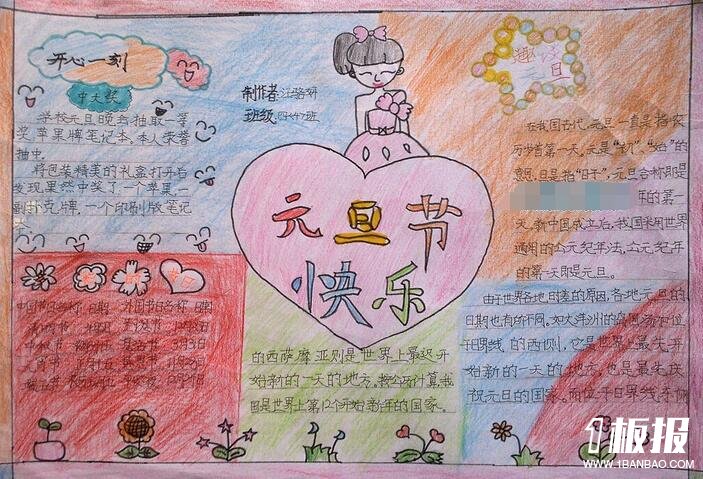 开心一刻
中大奖
学校元旦晚会抽取一等
奖苹果牌笔记本,本人荣誉
抽中。
将包装精美的礼盒打开后
发现果然中奖了一个苹果,一
副扑克牌,一个印刷版笔记
本。
制作者:
班级:
元旦节
快乐
趣谈
元旦
在我国古代,元旦一直是指农
历岁首第一天。元是“初”、“始”的
意思,旦是指“日子”,元旦合称即是
年的第一
天。新中国成立后,我国采用世界
通用的公元纪年法,公元纪年
的第一天即是元旦。
由于世界各地时差的原因,各地元旦的
日期也有所不同。如大洋洲的岛国汤加位
于日界线的西侧,它是世界上最先开
始新的一天的地方,也是最先庆
祝元旦的国家。而位于日界线东侧
的西萨摩亚则是世界上最迟开
始新的一天的地方。按公历计算,我
国是世界上第12个开始新年的国家。
中国节日名称 日期 外国节日名称 日期
清明节
中秋节
元宵节
1板报
WWW.1BANBAO.COM